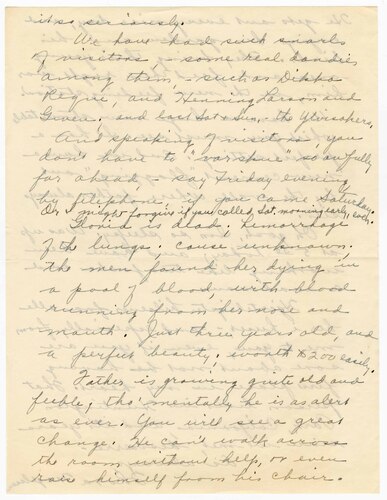 it so seriously.
We have had such snarls
of visitors – some real dandies
among them – such as Dikka
and Henning Larson and
and last Sat + Sun. the
And speaking of visitors, you
don't have to "varshue" so awfully
far ahead – say Friday evening
by telephone, if you came Saturday.
Or I might forgive if you called Sat. morning early, early.
is dead; hemorrhage
of the lungs; cause unknown.
The men found her dying in
a pool of blood, with blood
running from her nose and
mouth. Just three years old, and
a perfect beauty; worth $200 easily.
Father is growing quite old and
feeble; tho' mentally he is as alert
as ever. You will see a great
change. He can't walk across
the room without help, or even
raise himself from his chair.